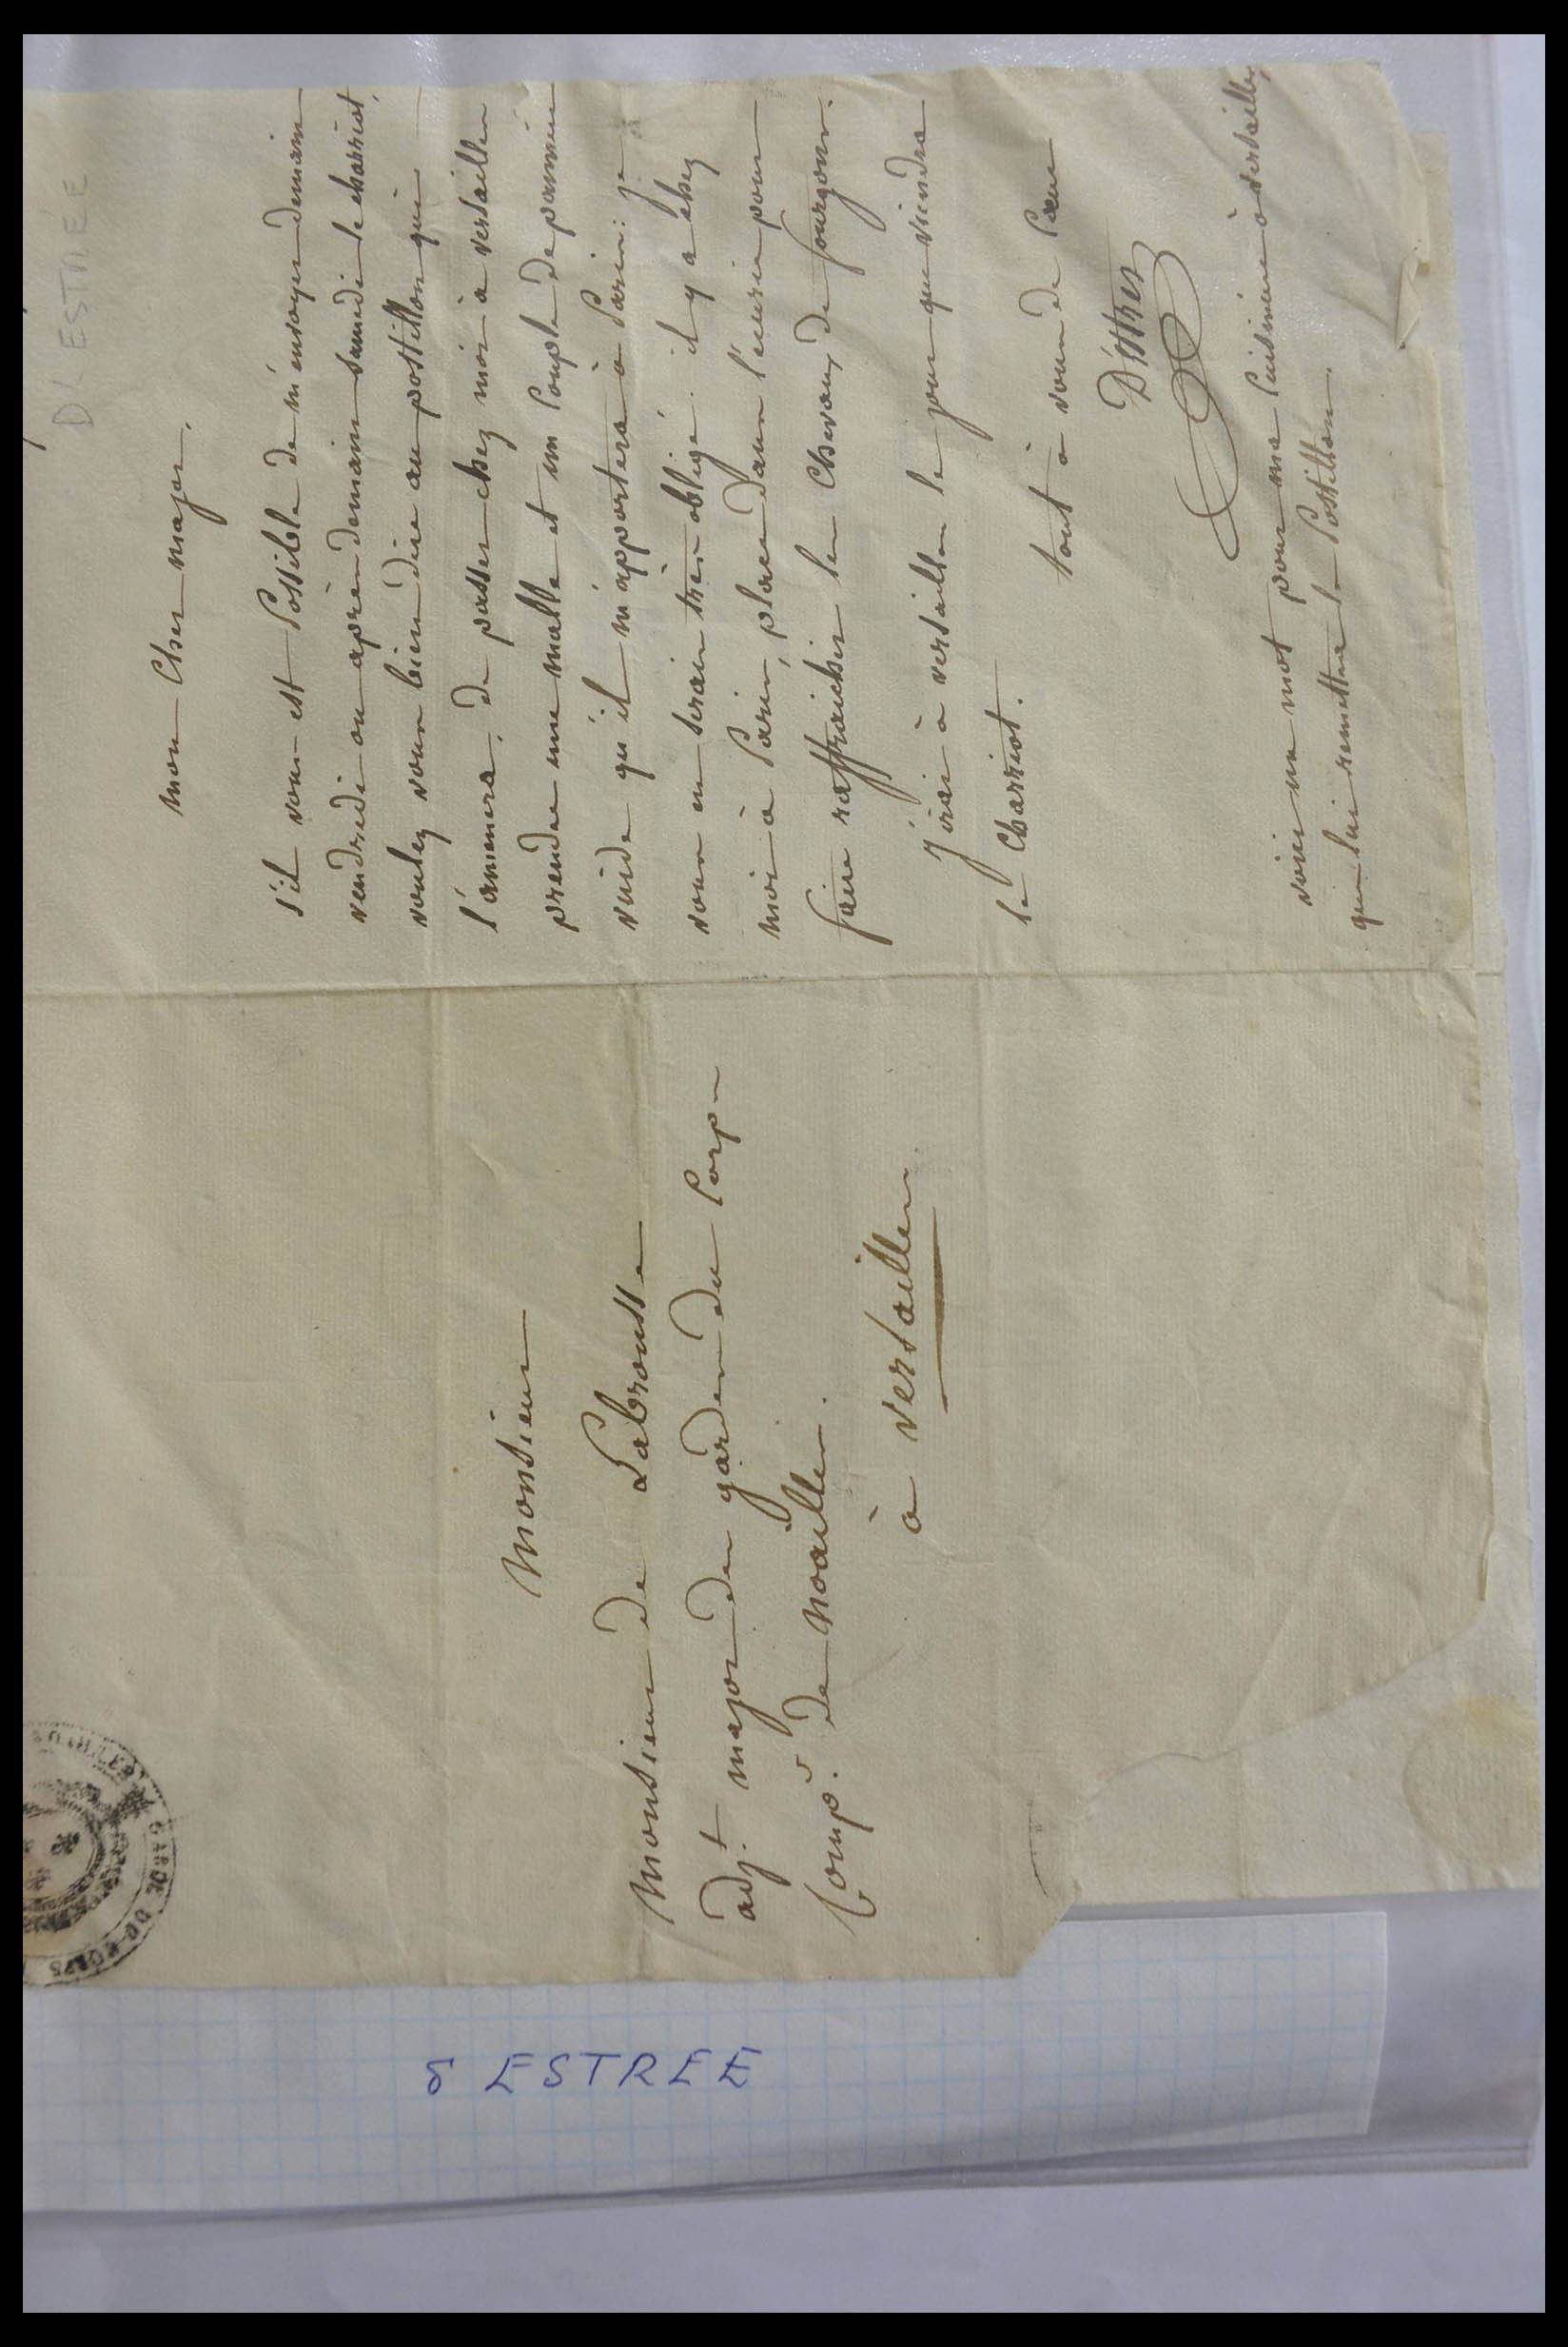 D'ESTRÉE
mon Cher major.
s'il vous est Possible de m'envoyer demain
vendredi ou après demain samedi le charriot,
voulez vous bien dire au postillon qui
l'amenera, de passer chez moi à versailles
prendre une malle et un Couple de panniers
vuide qu'il m'apportera à Paris: je
vous en serais très obligé. il y a chez
moi à Paris, place dans l'écurie pour
faire raffraichir les Chevaux de fourgons.
J'irai à versailles le jour que viendra
le Charriot.
tout à vous de Cœur
D'éstrez
voici un mot pour ma Cuisinière à versailles,
que lui remettra le Postillon.
Monsieur
Monsieur de Labrousse
adj.t major des gardes du Corps
Comp.e de noailles.
à versailles.
GARDE DU CORPS
d ESTREE